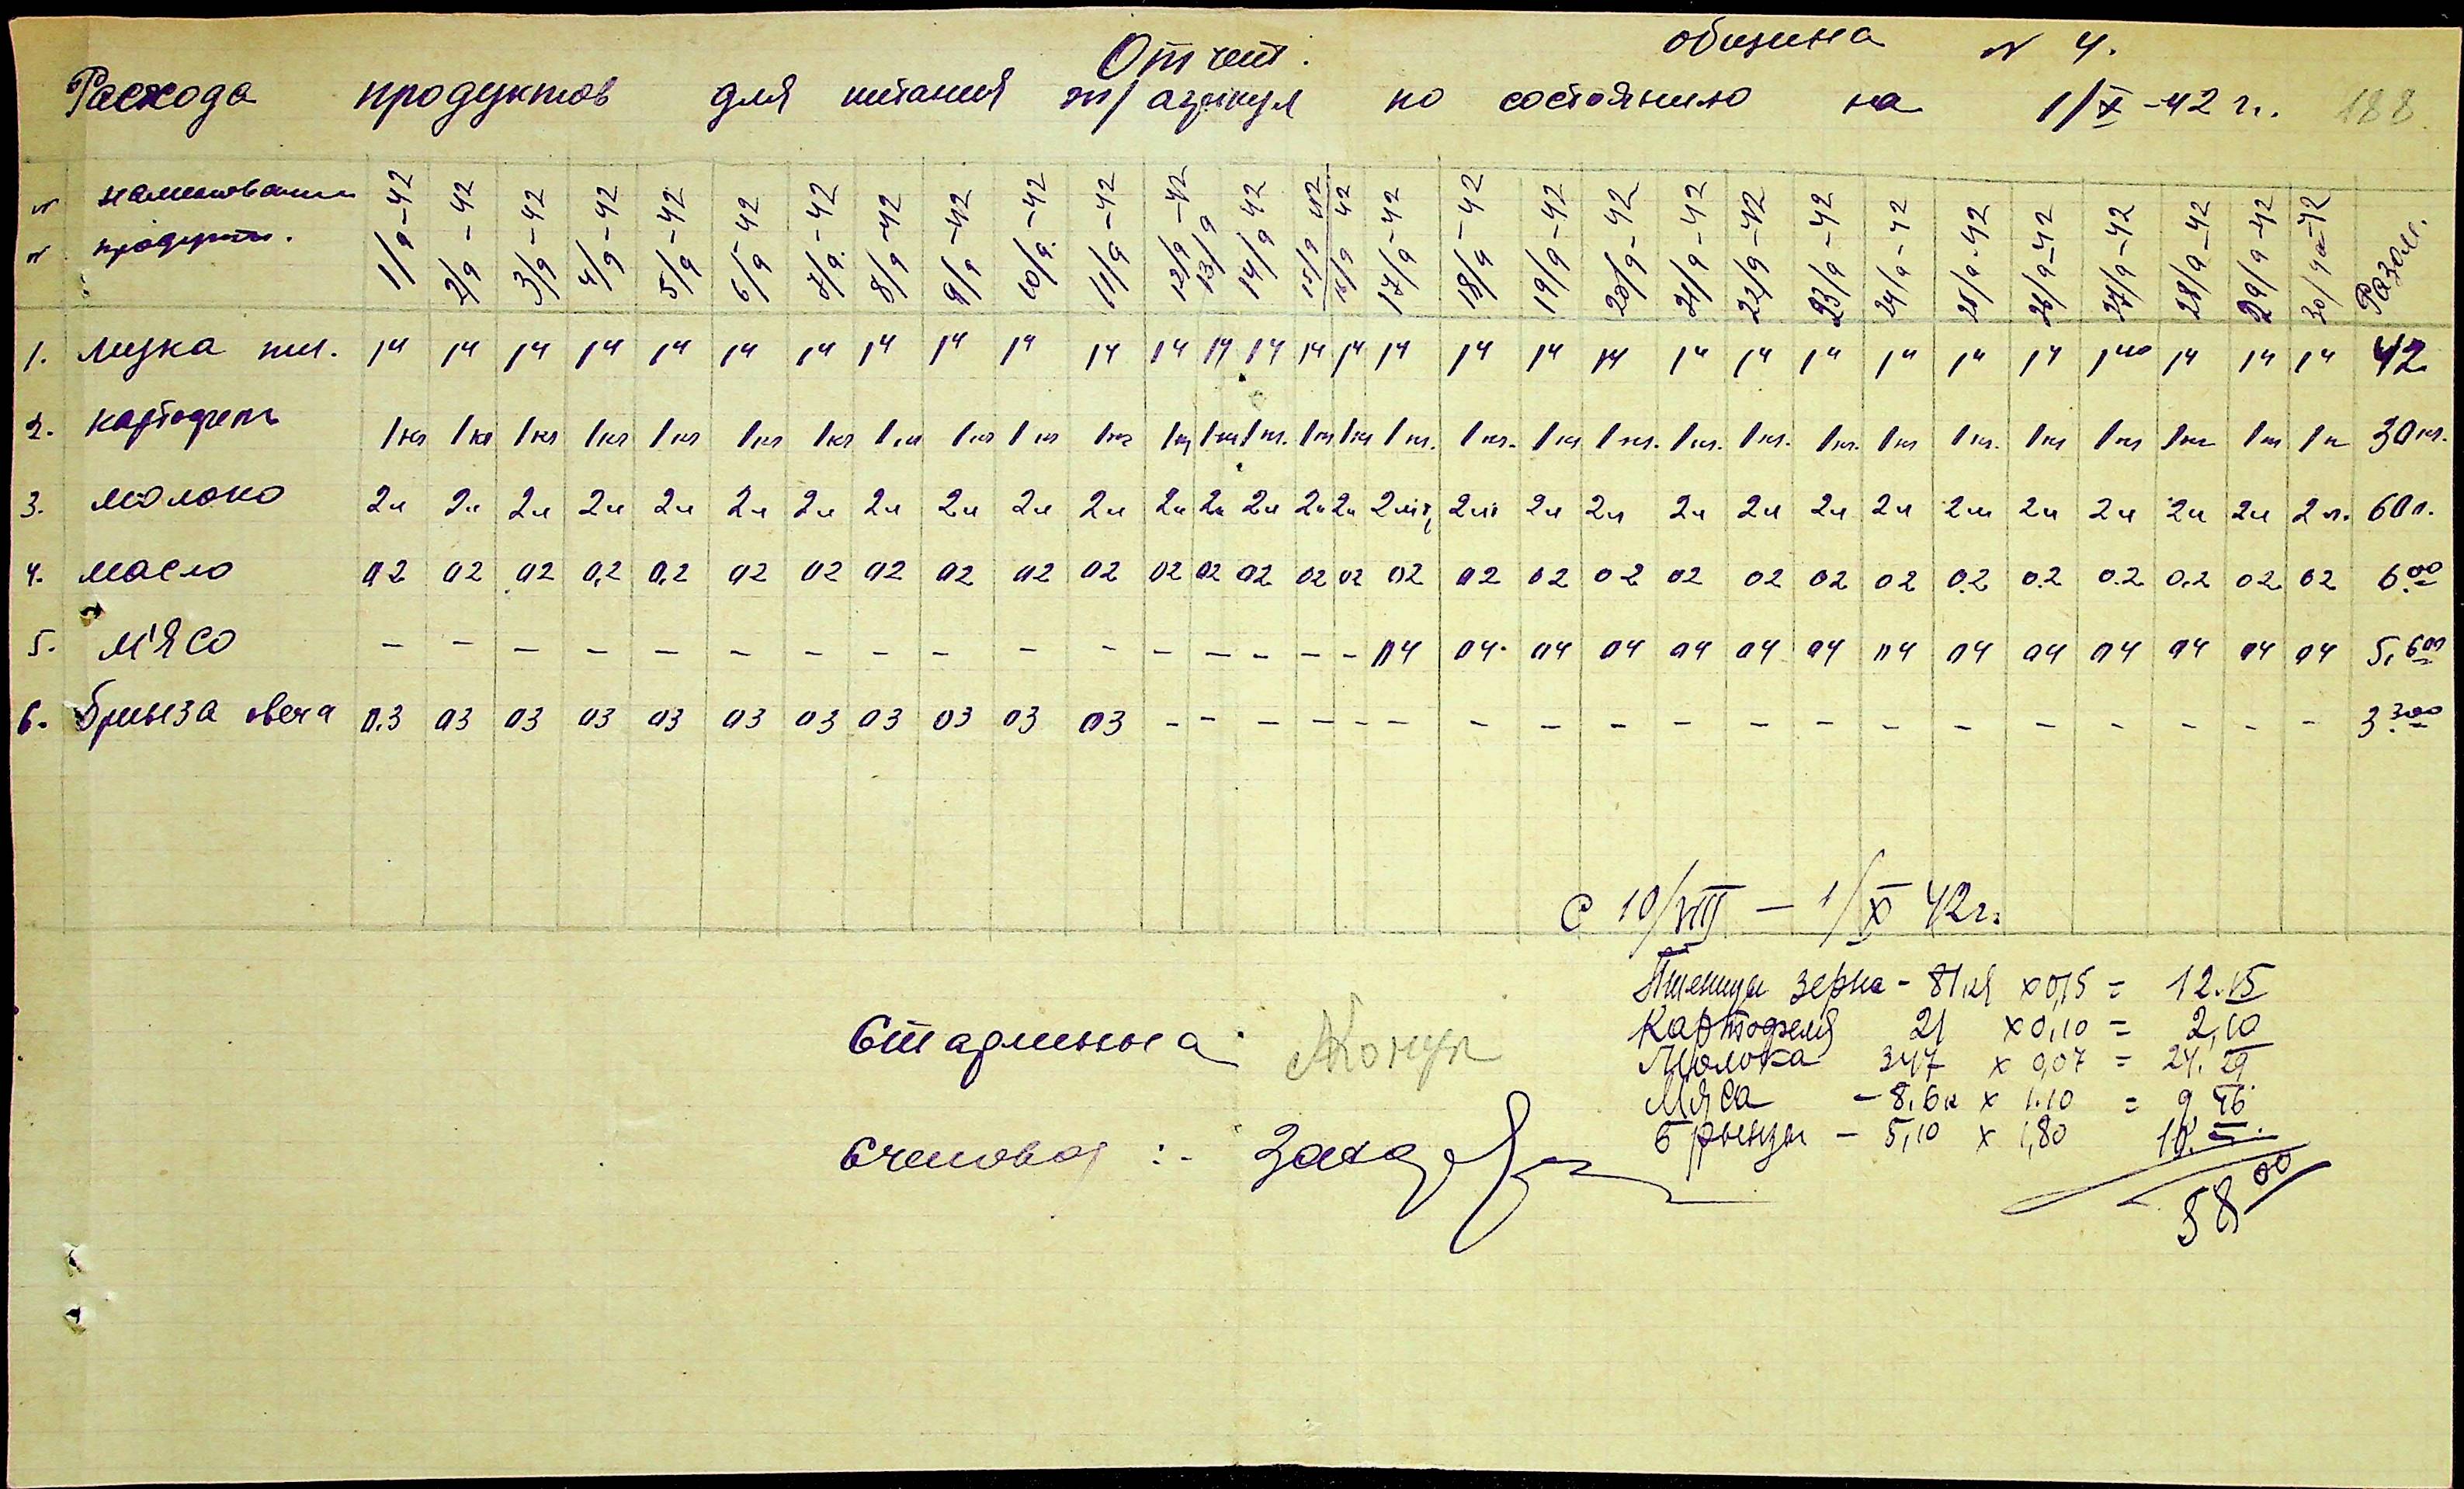 Отчет. община № 4.
Расхода продуктов для питания по состоянию на 1/X -42 г. 188
№ наименования 1/9-42 2/9-42 3/9-42 4/9-42 5/9-42 6/9-42 7/9-42 8/9-42 9/9-42 10/9-42 11/9-42 12/9-42 13/9 14/9 42 15/9 42 16/9 42 17/9-42 18/9-42 19/9-42 20/9-42 21/9-42 22/9-42 23/9-42 24/9-42 25/9-42 26/9-42 27/9-42 28/9-42 29/9-42 30/9-42 Разом.
№ продукты.
1. Мука пш. 14 14 14 14 14 14 14 14 14 14 14 14 14 14 14 14 14 14 14 14 14 14 14 14 14 14 14 14 14 14 42
2. картофель 1кг 1кг 1кг 1кг 1кг 1кг 1кг 1кг 1кг 1кг 1кг 1кг 1кг 1кг. 1кг 1кг 1кг. 1кг. 1кг 1кг. 1кг. 1кг. 1кг. 1кг 1кг. 1кг 1кг 1кг 1кг 1к 30кг.
3. молоко 2л 2л 2л 2л 2л 2л 2л 2л 2л 2л 2л 2л 2л 2л 2л 2л 2лит 2лит 2л 2л 2л 2л 2л 2л 2л 2л 2л 2л 2л 2л. 60л.
4. масло 02 02 02 0,2 0,2 02 02 02 02 02 02 02 02 02 02 02 02 02 02 02 02 02 02 02 0.2 0.2 0.2 0.2 02 02 6.00
5. м'ясо - - - - - - - - - - - - - - - - 04 04 04 04 04 04 04 04 04 04 04 04 04 04 5,600
6. брынза овеча 0.3 03 03 03 03 03 03 03 03 03 03 - - - - - - - - - - - - - - - - - - - 3.300
С 10/VIII — 1/X 42г.
Пшеницы зерна - 81кг x 0,15 = 12.15
Картофеля 21 x 0,10 = 2,10
Молока 347 x 0,07 = 24.29
Мяса - 8,6к x 1.10 = 9 46
Брынзы - 5,10 x 1,80 10.
58 00
Старшина
Счетовод :-